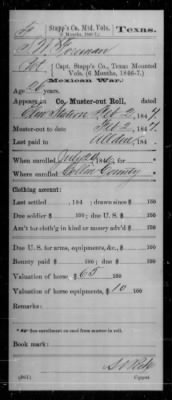 F | Stapp's Co. Mtd. Vols. (6 Months, 1846-7.) | Texas.
Foreman
Capt. Stapp's Co., Texas Mounted Vols. (6 Months, 1846-7.)
Mexican War.
Age 26 years.
Appears on Co. Muster-out Roll, dated
Elm Station Feb 2, 1847.
Muster-out to date Feb 2, 1847.
Last paid to
When enrolled July 20, 1846.*
Where enrolled Collin County
Clothing account:
Last settled , 184 ; drawn since $ 100
Due soldier $ 100; due U. S. $ 100
Am't for cloth'g in kind or money adv'd $ 100
Due U. S. for arms, equipments, &c., $ 100
Bounty paid $ 100; due $ 100
Valuation of horse $ 65 100
Valuation of horse equipments, $ 10 100
Remarks:
*See enrollment on card from muster-in roll.
Book mark:
(861) Copyist.